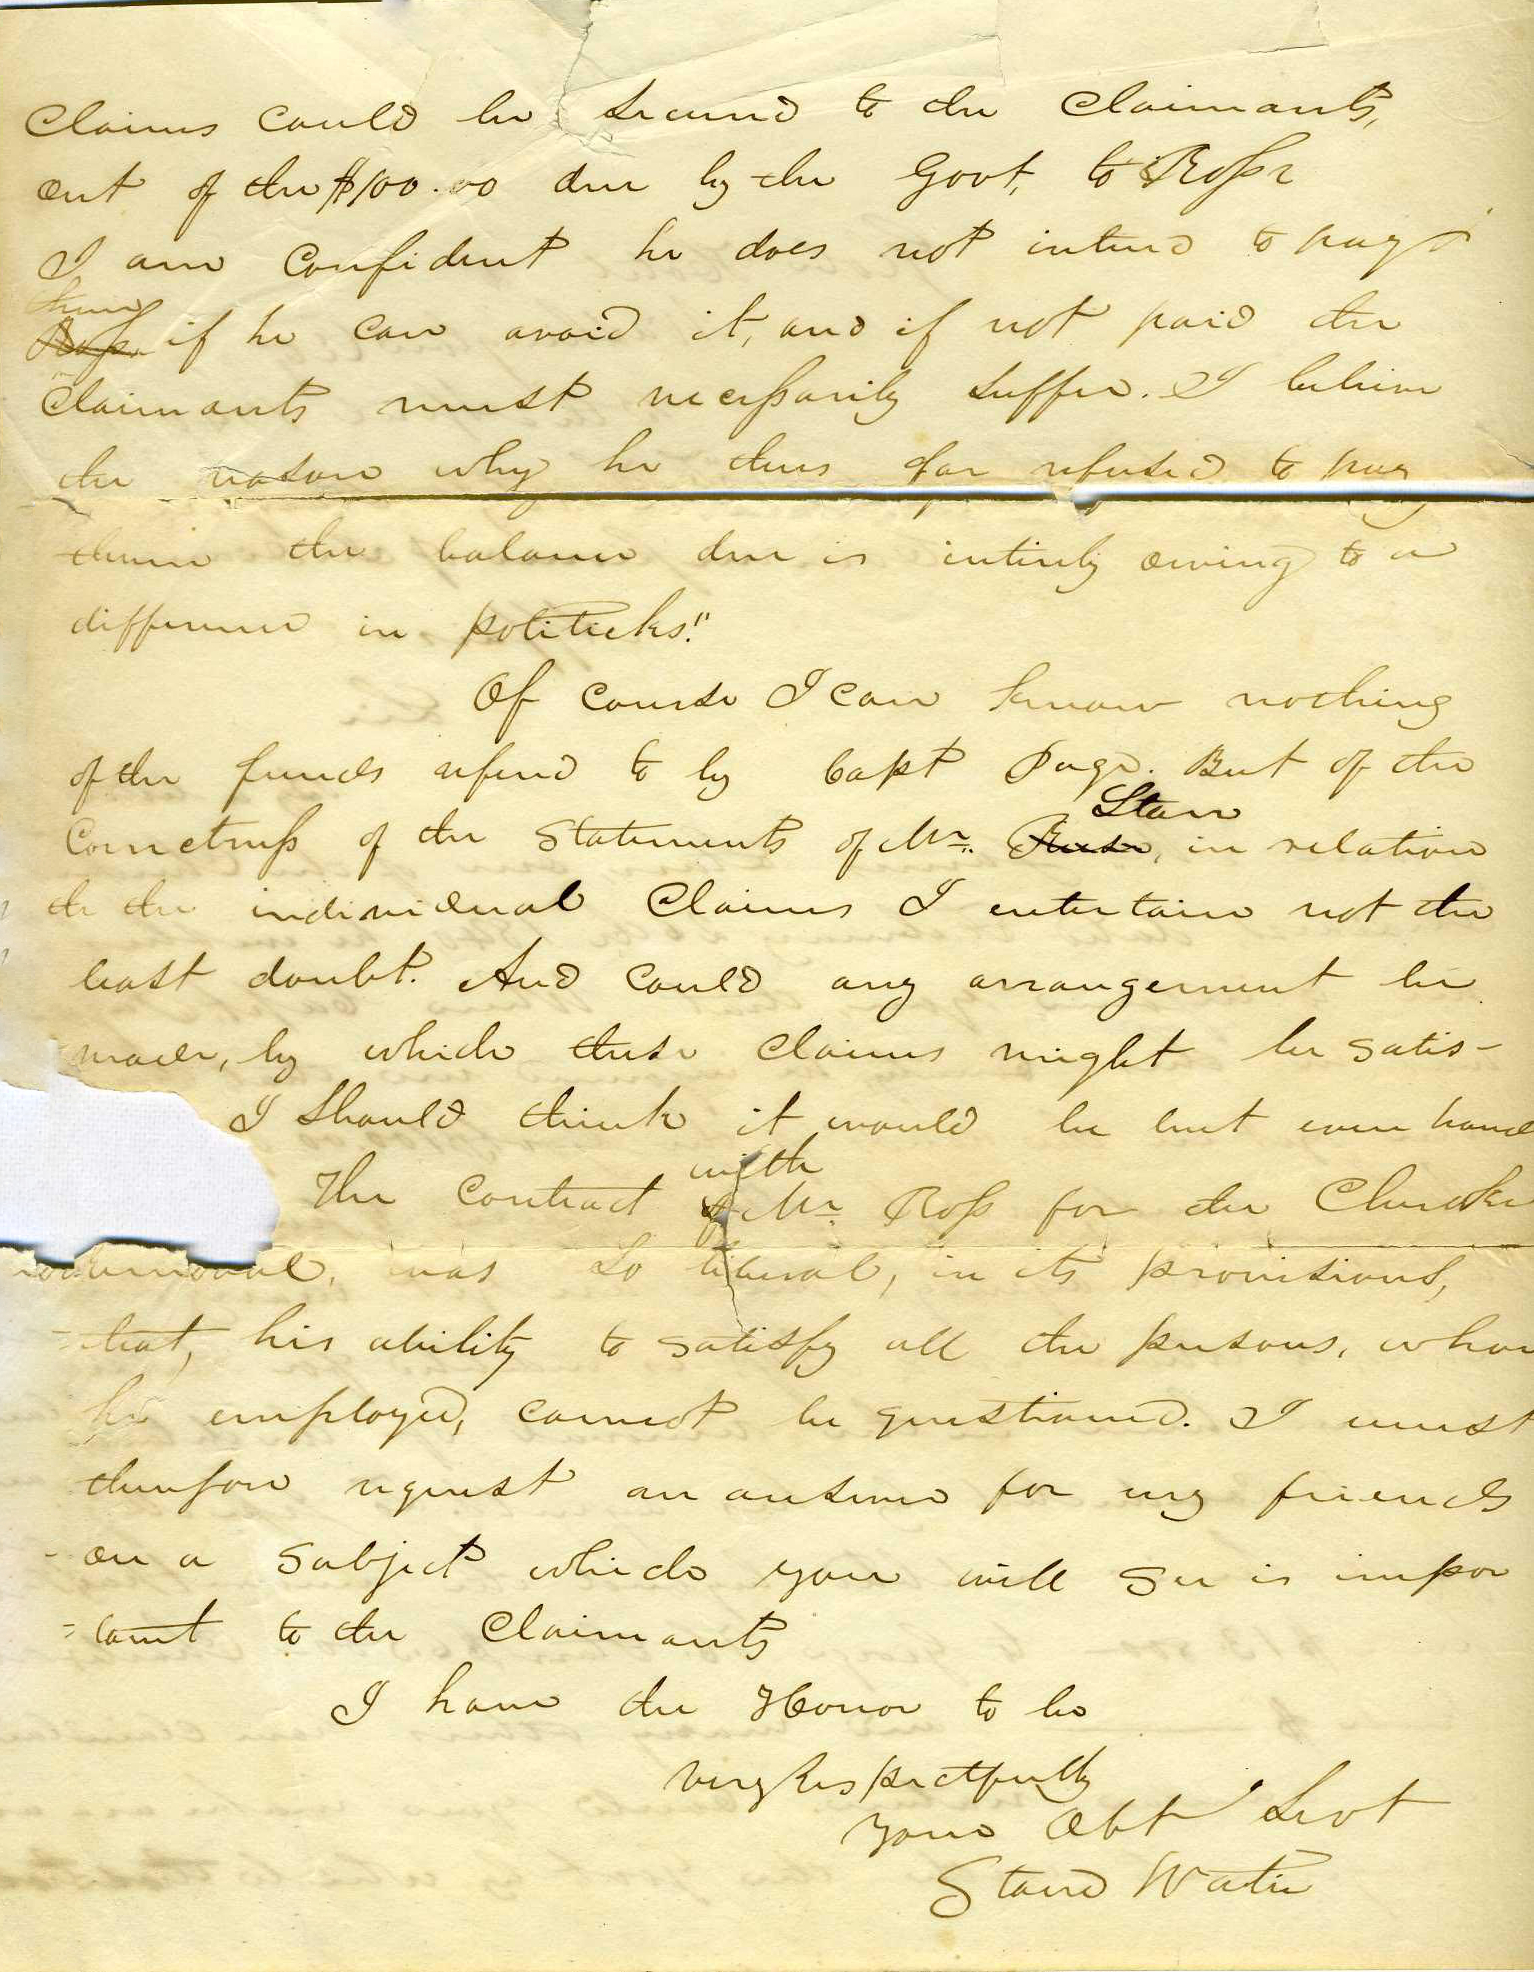 Claims could be secured to the Claimants,
out of the $100.00 due by the Govt, to Ross
I am confident he does not intend to pay
them
Ross if he can avoid it, and if not paid the
Claimants must necessarily suffer. I believe
the reason why he thus far refused to pay
them the balance due is intirely owing to a
difference in politicks."
Of course I can know nothing
of the funds refered to by Capt Page. But of the
Starr
Correctness of the Statements of Mr. in relation
to the individual Claims I entertain not the
least doubt. And could any arrangement be
made, by which these claims might be satis-
I should think it would be but even hand
with
The Contract of Mr. Ross for the Cherokee
was so liberal, in its provisions,
that, his ability to satisfy all the persons, whom
he employed, cannot be questioned. I must
therefore request an answer for my friends
on a subject which you will see is impor
=tant to the Claimants
I have the Honor to be
very Respectfully
Your Obt Servt
Stand Watie